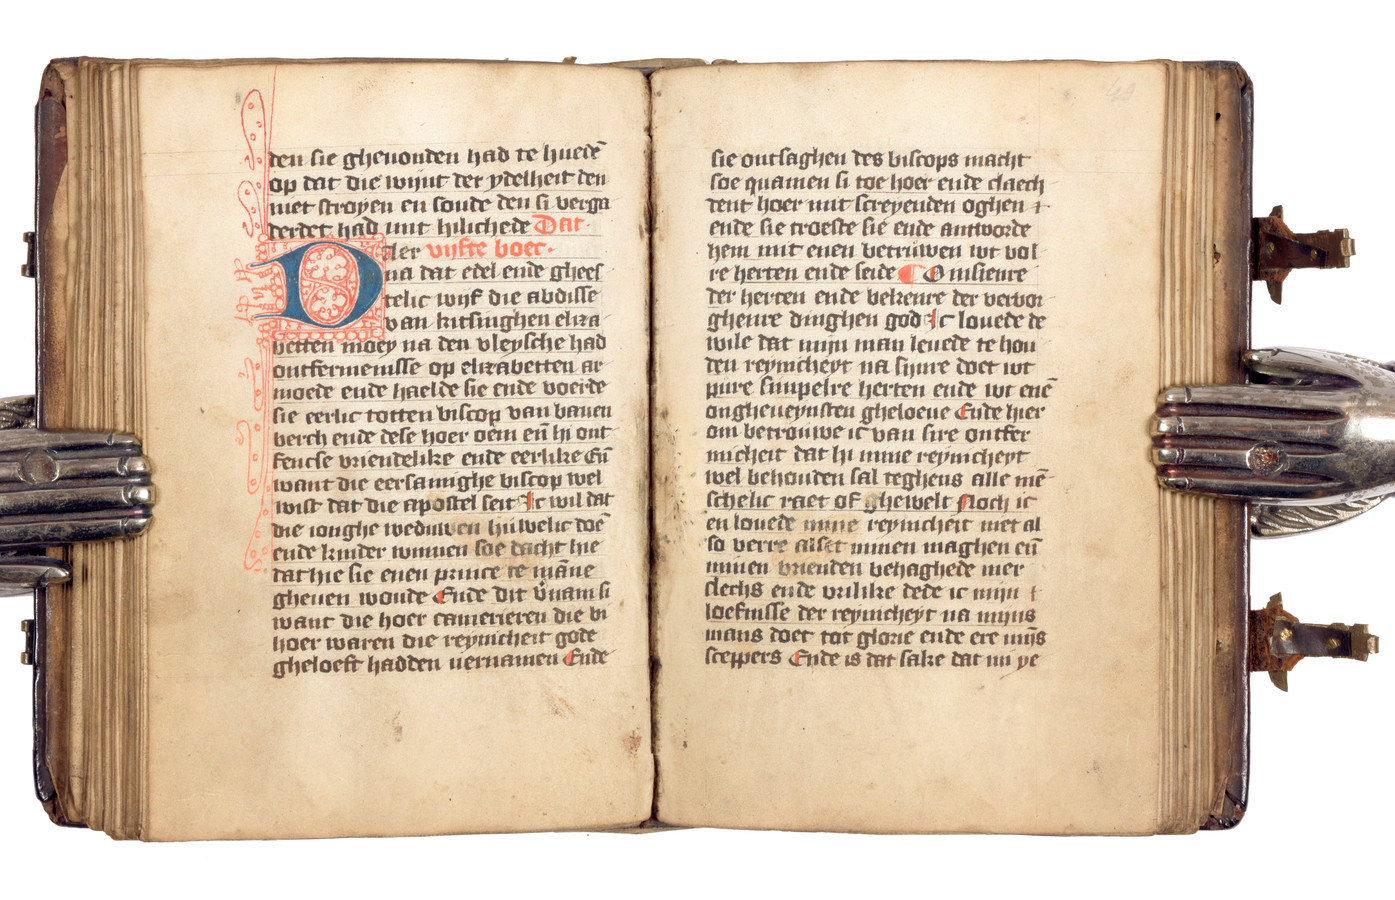 den sie gheuonden had te huedē
op dat die wijnt der ydelheit den
niet stroyen en soude den si verga
derdet had mit hilichede Dat
ler vijfte boec.
Dna dat edel ende ghees
telic wijf die abdisse
van kitsinghen eliza
betten moey na den vleysche had
ontfermenisse op elizabetten ar
moede ende haelde sie ende voerde
sie eerlic totten biscop van bauen
berch ende dese hoer oem en̄ hi ont
fencse vriendelike ende eerlike En̄
want die eersamighe biscop wel
wist dat die apostel seit Ic wil dat
die ionghe weduwen huwelic doē
ende kinder winnen soe dacht hie
dat hie sie enen prince te māne
gheuen woude Ende dit v̄nam si
want die hoer camerieren die bi
hoer waren die reynicheit gode
gheloeft hadden uernamen Ende
49
sie ontsaghen des biscops macht
soe quamen si toe hoer ende claech
dent hoer mit screyenden oghen
ende sie troeste sie ende antworde
hem mit enen betruwen wt vol
re herten ende seide O insienre
der herten ende bekenre der verbor
ghenre dinghen god Ic louede de
wile dat mijn man leuede te hou
den reynicheyt na sijnre doet wt
pure simpelre herten ende wt enē
ongheueynsten gheloeue Ende hier
om betrouwe ic van sire ontfer
micheit dat hi mine reynicheyt
wel behouden sal teghens alle mē
schelic raet of ghewelt Noch ic
en louede mine reynicheit niet al
so verre alset minen maghen en̄
minen vrienden behaghede mer
slechs ende vrilike dede ic mijn
loefnisse der reynicheyt na mijns
mans doet tot glorie ende ere mijs
sceppers Ende is dat sake dat mi ye